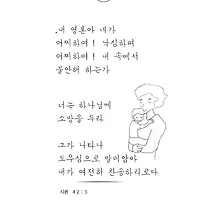 내 영혼아 네가
어찌하여! 낙심하여
어찌하여! 내 속에서
불안하여 하는가
너는 하나님께
소망을 두라
그가 나타나
도우심으로 말미암아
내가 여전히 찬송하리로다
시편 42:5